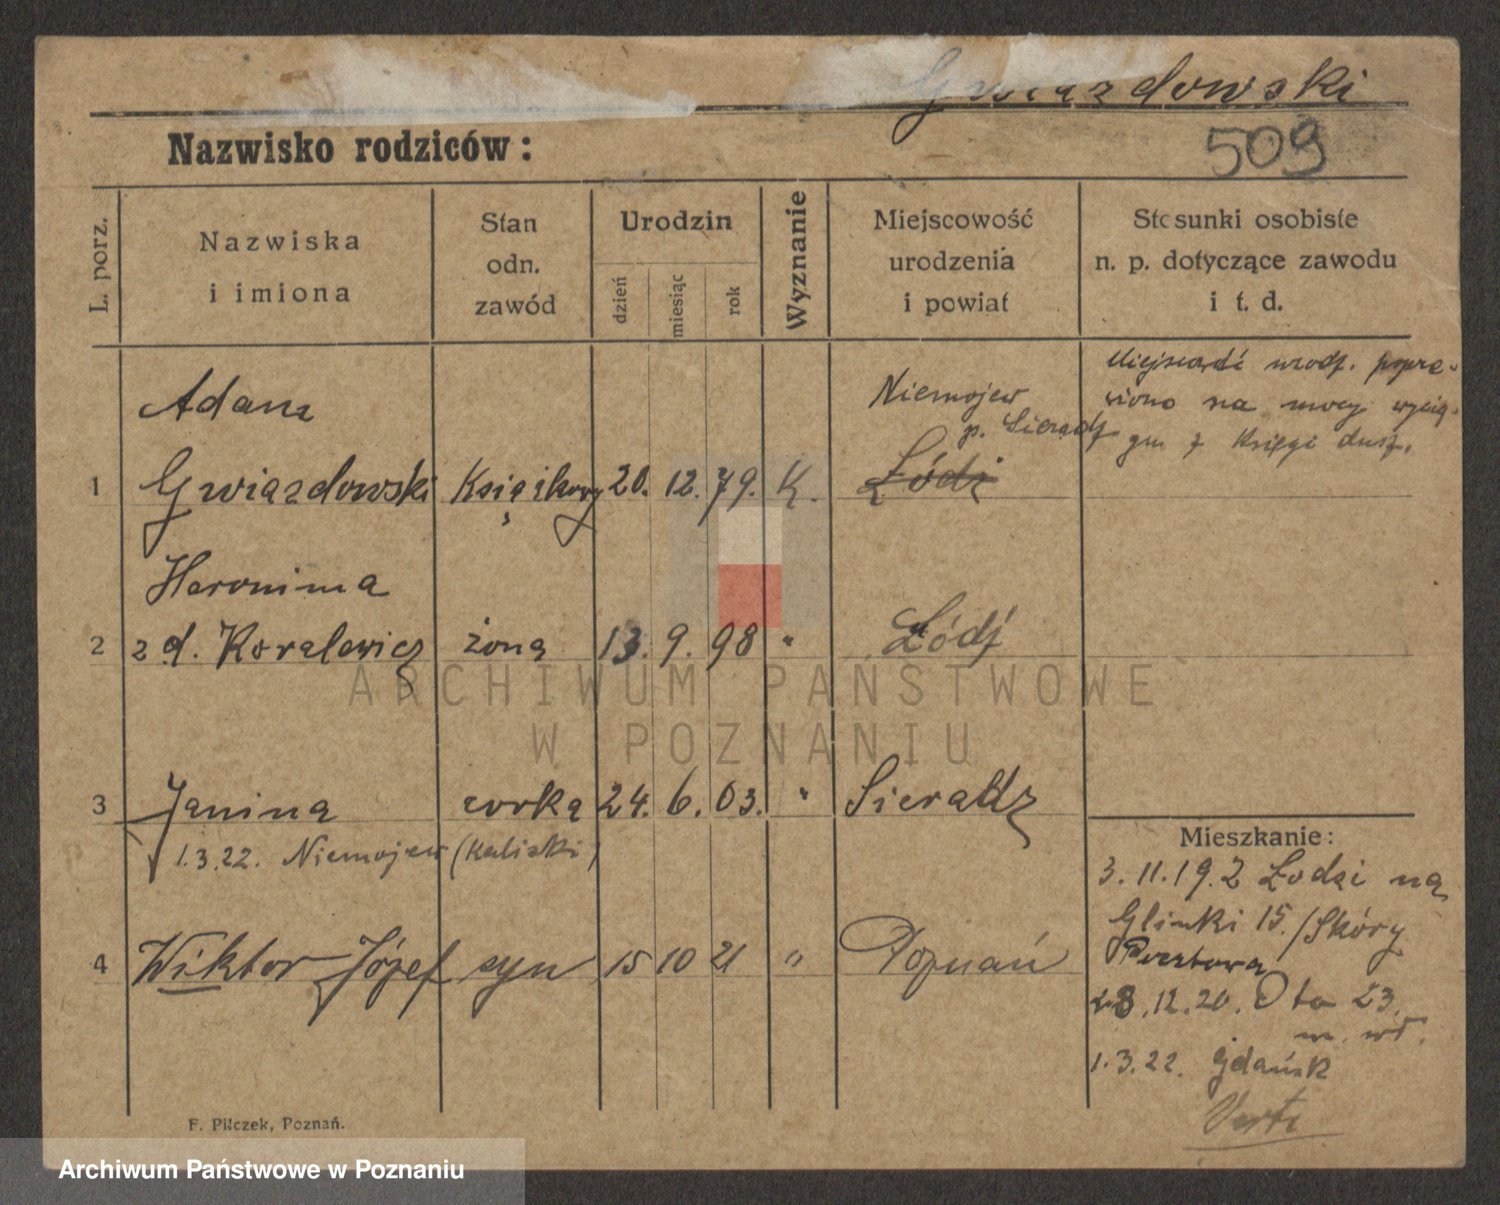 Gwiazdowski
Nazwisko rodziców:
509
L. porz.
Nazwiska
i imiona
Stan
odn.
zawód
Urodzin
dzień
miesiąc
rok
Wyznanie
Miejscowość
urodzenia
i powiat
Stosunki osobiste
n. p. dotyczące zawodu
i t. d.
Adam
Niemojew
p. Sieradz
Miejscowość urodz. popra-
wiono na mocy wycią-
gu z Księgi
1 Gwiazdowski 20. 12. 79. K. Łódź
Heronima
2 z d. Koralewicz żona 13. 9. 98 " Łódź
3 Janina corka 24. 6. 03. " Sieradz
1.3.22. Niemojew (Kaliski)
4 Wiktor Józef syn 15 10 21 " Poznań
Mieszkanie:
3. 11. 19. z Łodzi na
Glinki 15. / Skóry
Pocztowa
28. 12. 20. 23.
1. 3. 22. Gdańsk
Verte
F. Pilczek, Poznań.
ARCHIWUM PAŃSTWOWE
W POZNANIU
Archiwum Państwowe w Poznaniu